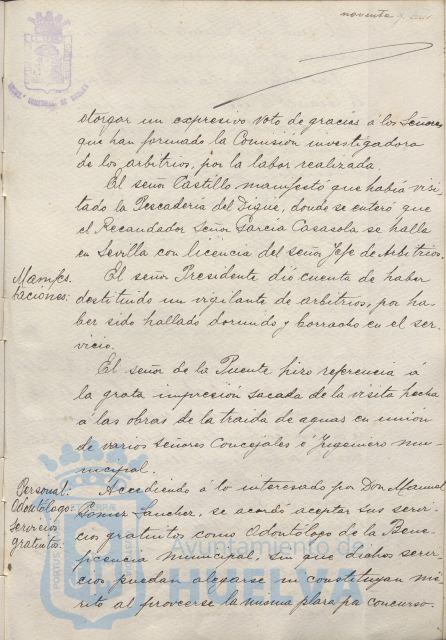 noventa y
otorgar un expresivo voto de gracias á los Señores
que han formado la Comisión investigadora
de los arbitrios, por la labor realizada.
El señor Castillo manifestó que había visi-
tado la Pescadería del Dique, donde se enteró que
el Recaudador Señor García Casasola se halla
en Sevilla con licencia del señor Jefe de Arbitrios.
Manifes-
taciones:
El señor Presidente dió cuenta de haber
destituido un vigilante de arbitrios, por ha-
ber sido hallado dormido y borracho en el ser-
vicio.
El señor de la Puente hizo referencia á
la grata impresión sacada de la visita hecha
a las obras de la traida de aguas en unión
de varios señores Concejales é Ingeniero mu-
nicipal.
Personal:
Odontólogo:
servicios
gratuitos.
Accediendo á lo interesado por Don Manuel
Sanchez, se acordó aceptar sus servi-
cios gratuitos como Odontólogo de la Bene-
ficencia municipal, sin que dichos servi-
cios puedan alegarse ni constituyan mé-
rito al proveerse la misma plaza pr concurso.
Ayuntamiento de
HUELVA